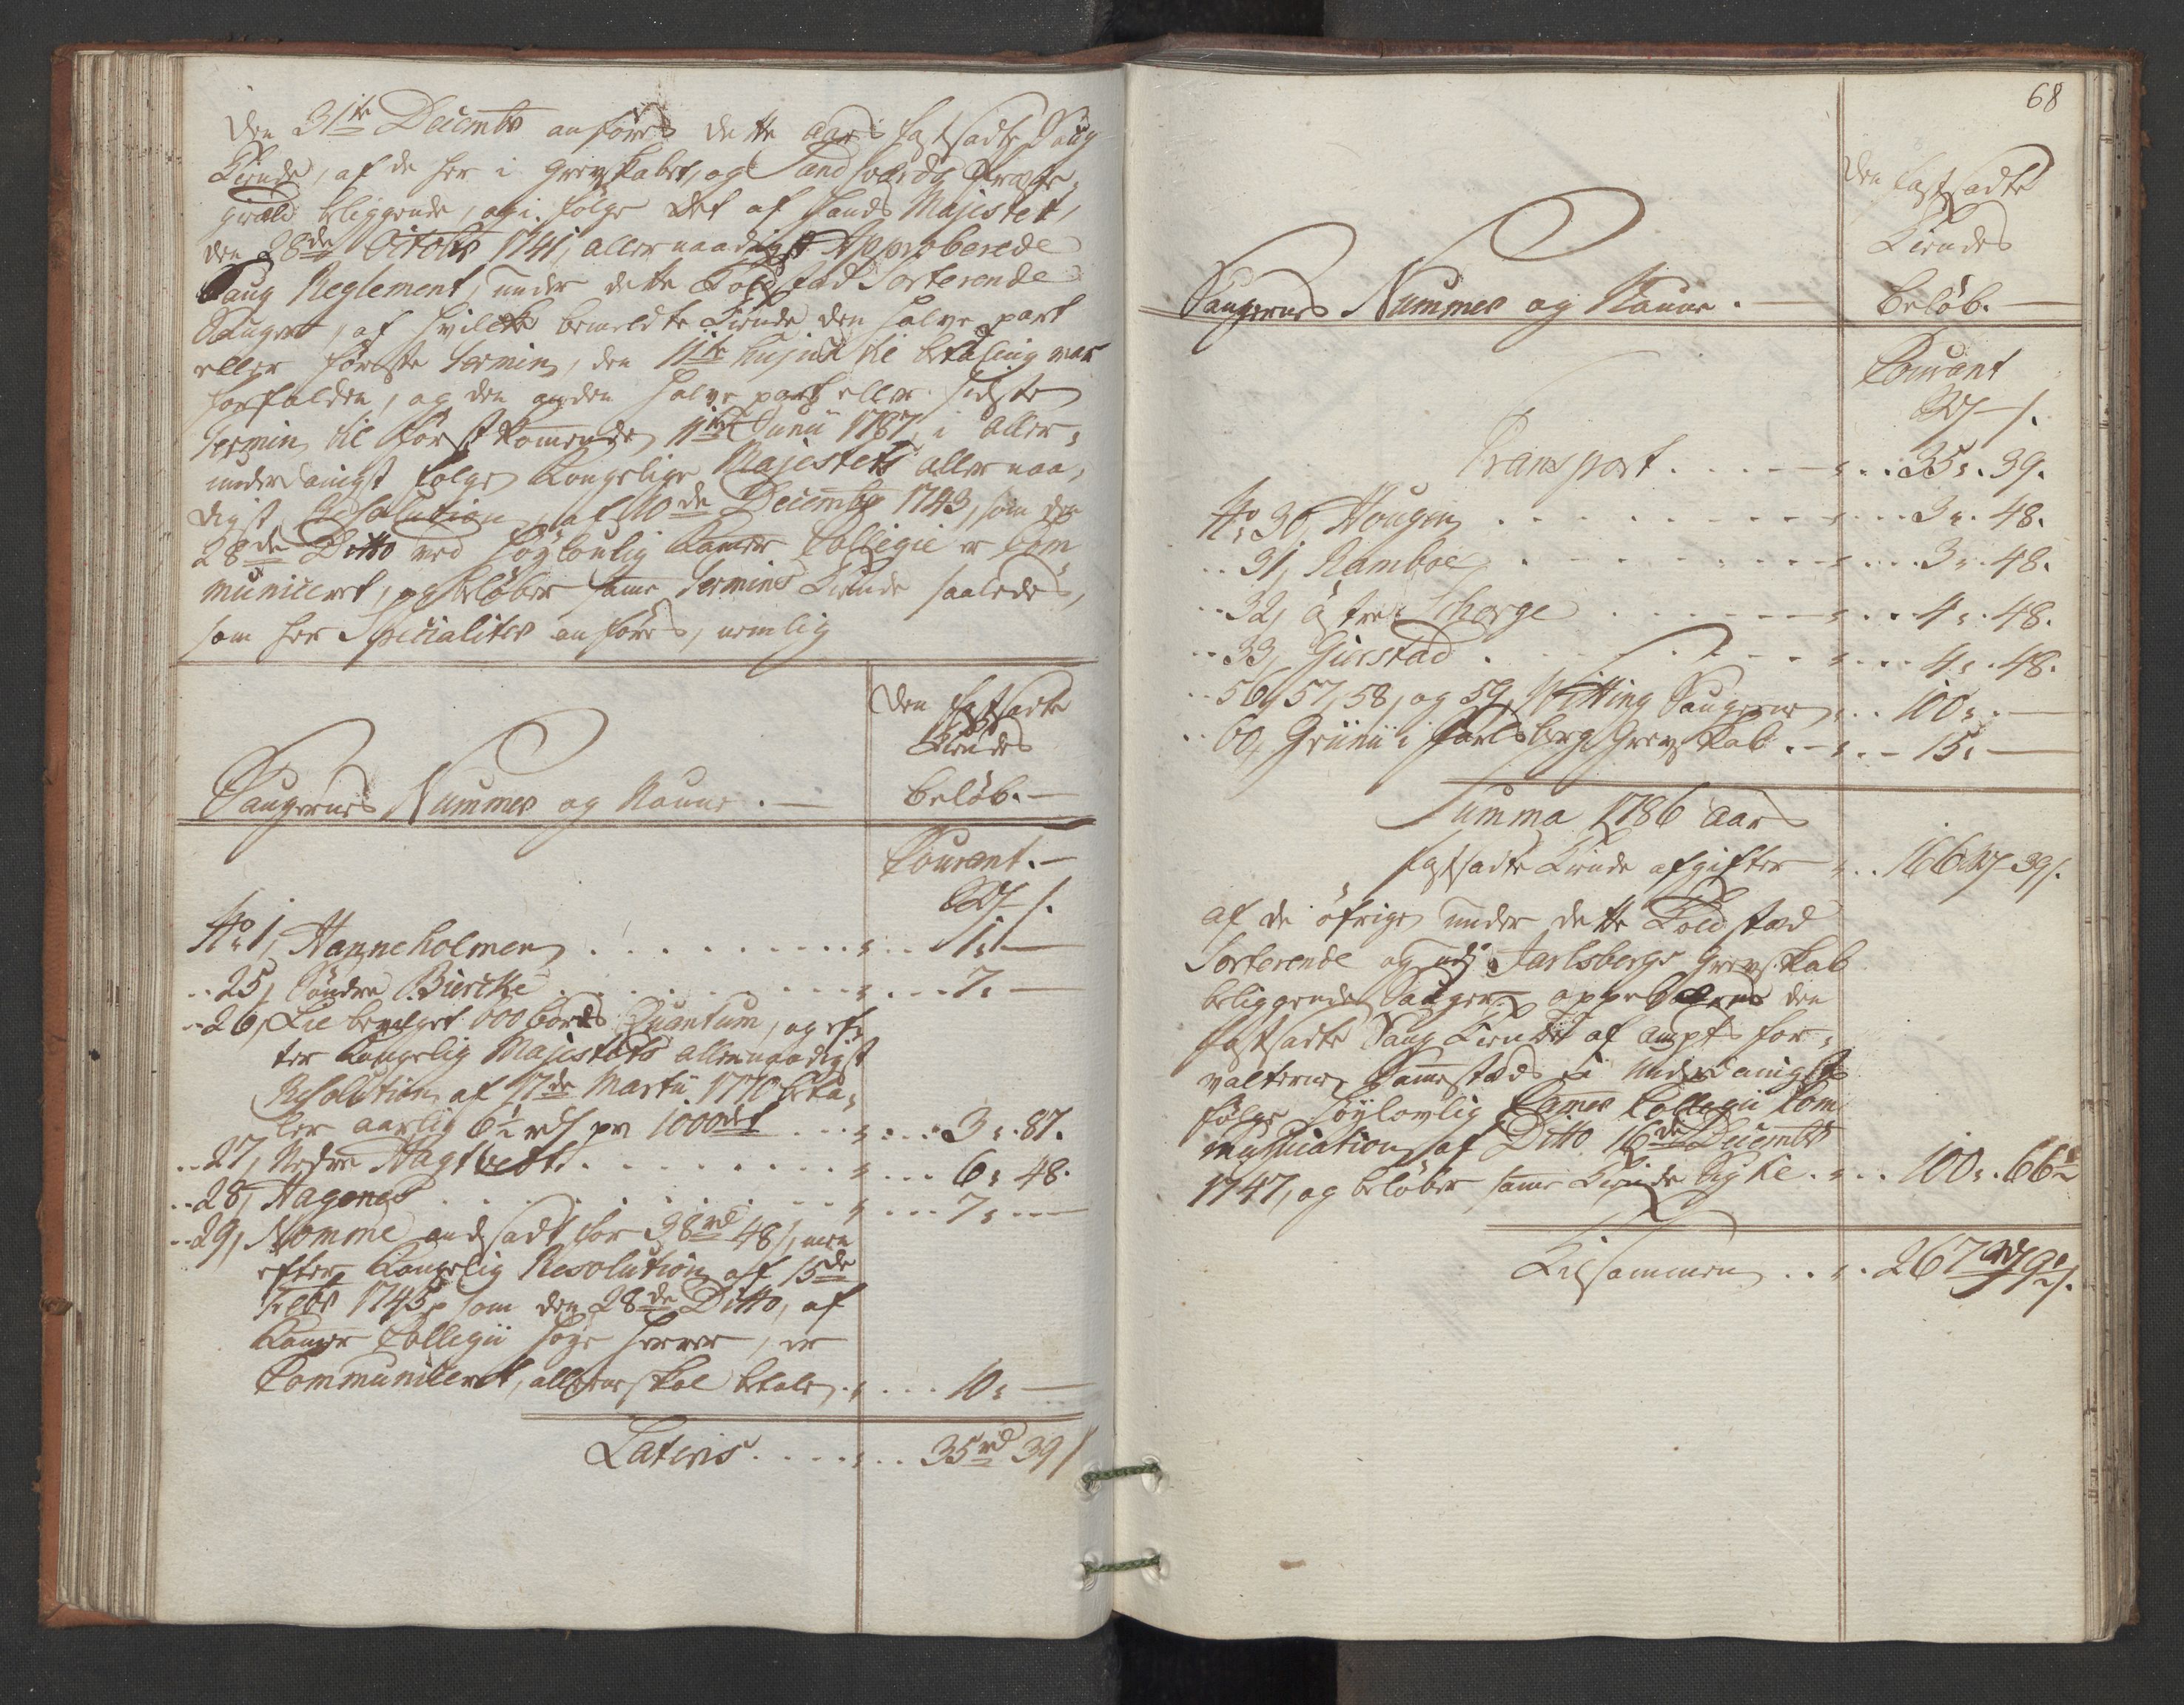 Den 31te Decembr anföres dette Aars fastsadte Saug
Tiende, af de her i Grevskabet, og Sandsværds Præste-
gield beliggende, og i fölge Det af Hands Majestet,
den 28de Octobr 1741, allernaadigst Approberede
Saug Reglement, under dette Told stad Sorterende
Sauger, af hvilcke bemeldte Tiende den halve part
eller förste Termin, den 11te hujus til betaling var
forfalden, og den anden halve part eller sidste
Termin til förstkomende 11te Junii 1787, i Aller-
underdanigst fölge Kongelige Majestets allernaa-
digst Resolution, af 10de Decembr 1743, som den
28de Ditto ved höylovlig Kamer Collegie er Com
municeret, og belöber samme Termins Tiende saaledes,
som her Specialiter anföres, nemlig
Saugernes Nummer og Naune.
Den fastsadte
Tiendes
belöb.
Courant.
Rd s.
No 1, Hanneholmen 1. —
25, Söndre Biercke 7. —
26, Lie bevilget 600 bords Quantum, og ef-
ter Kongelig Majestets allernaadigst
Resolution af 17de Martii 1770 beta-
ler aarlig 6½ rd pr 1000de 3. 87.
27, Nedre Hagtvedt 6. 48.
28, Hagenes 7. —
29, Nomme andsadt for 38rd 48s, men
efter Kongelig Resolution af 15de
Febr 1745, som den 28de Ditto, af
Kamer Collegii höye Herrer, er
Communiceret, alleene skal betale 10. —
Lateris 35rd 39s
68
Saugernes Nummer og Naune.
Den fastsadte
Tiendes
belöb.
Courant
Rd s.
Transport 35. 39.
No 30, Hougen 3. 48.
31, Ramboe 3. 48.
32, östre Schorge 4. 48.
33, Gierstad 4. 48.
56, 57, 58, og 59, Witting Saugerne 100. —
60, Grünü i Jarlsberg Grevskab 15. —
Summa 1786 Aars
fastsadte Tiende afgifter 166 Rd 39s.
Af de öfrige under dette Told stad
Sorterende og udj Jarlsbergs Grevskab
beliggende Sauger, oppebæres den
fastsadte Saug Tiende af Ampts for-
valteren Sammestæds i Underdanigst
fölge höylovlig Kamer Collegii Com
munication af Ditto 16de Decembr
1747, og belöber samme Tiende 100. 66½
Tilsammen 267 Rd 9½ s.